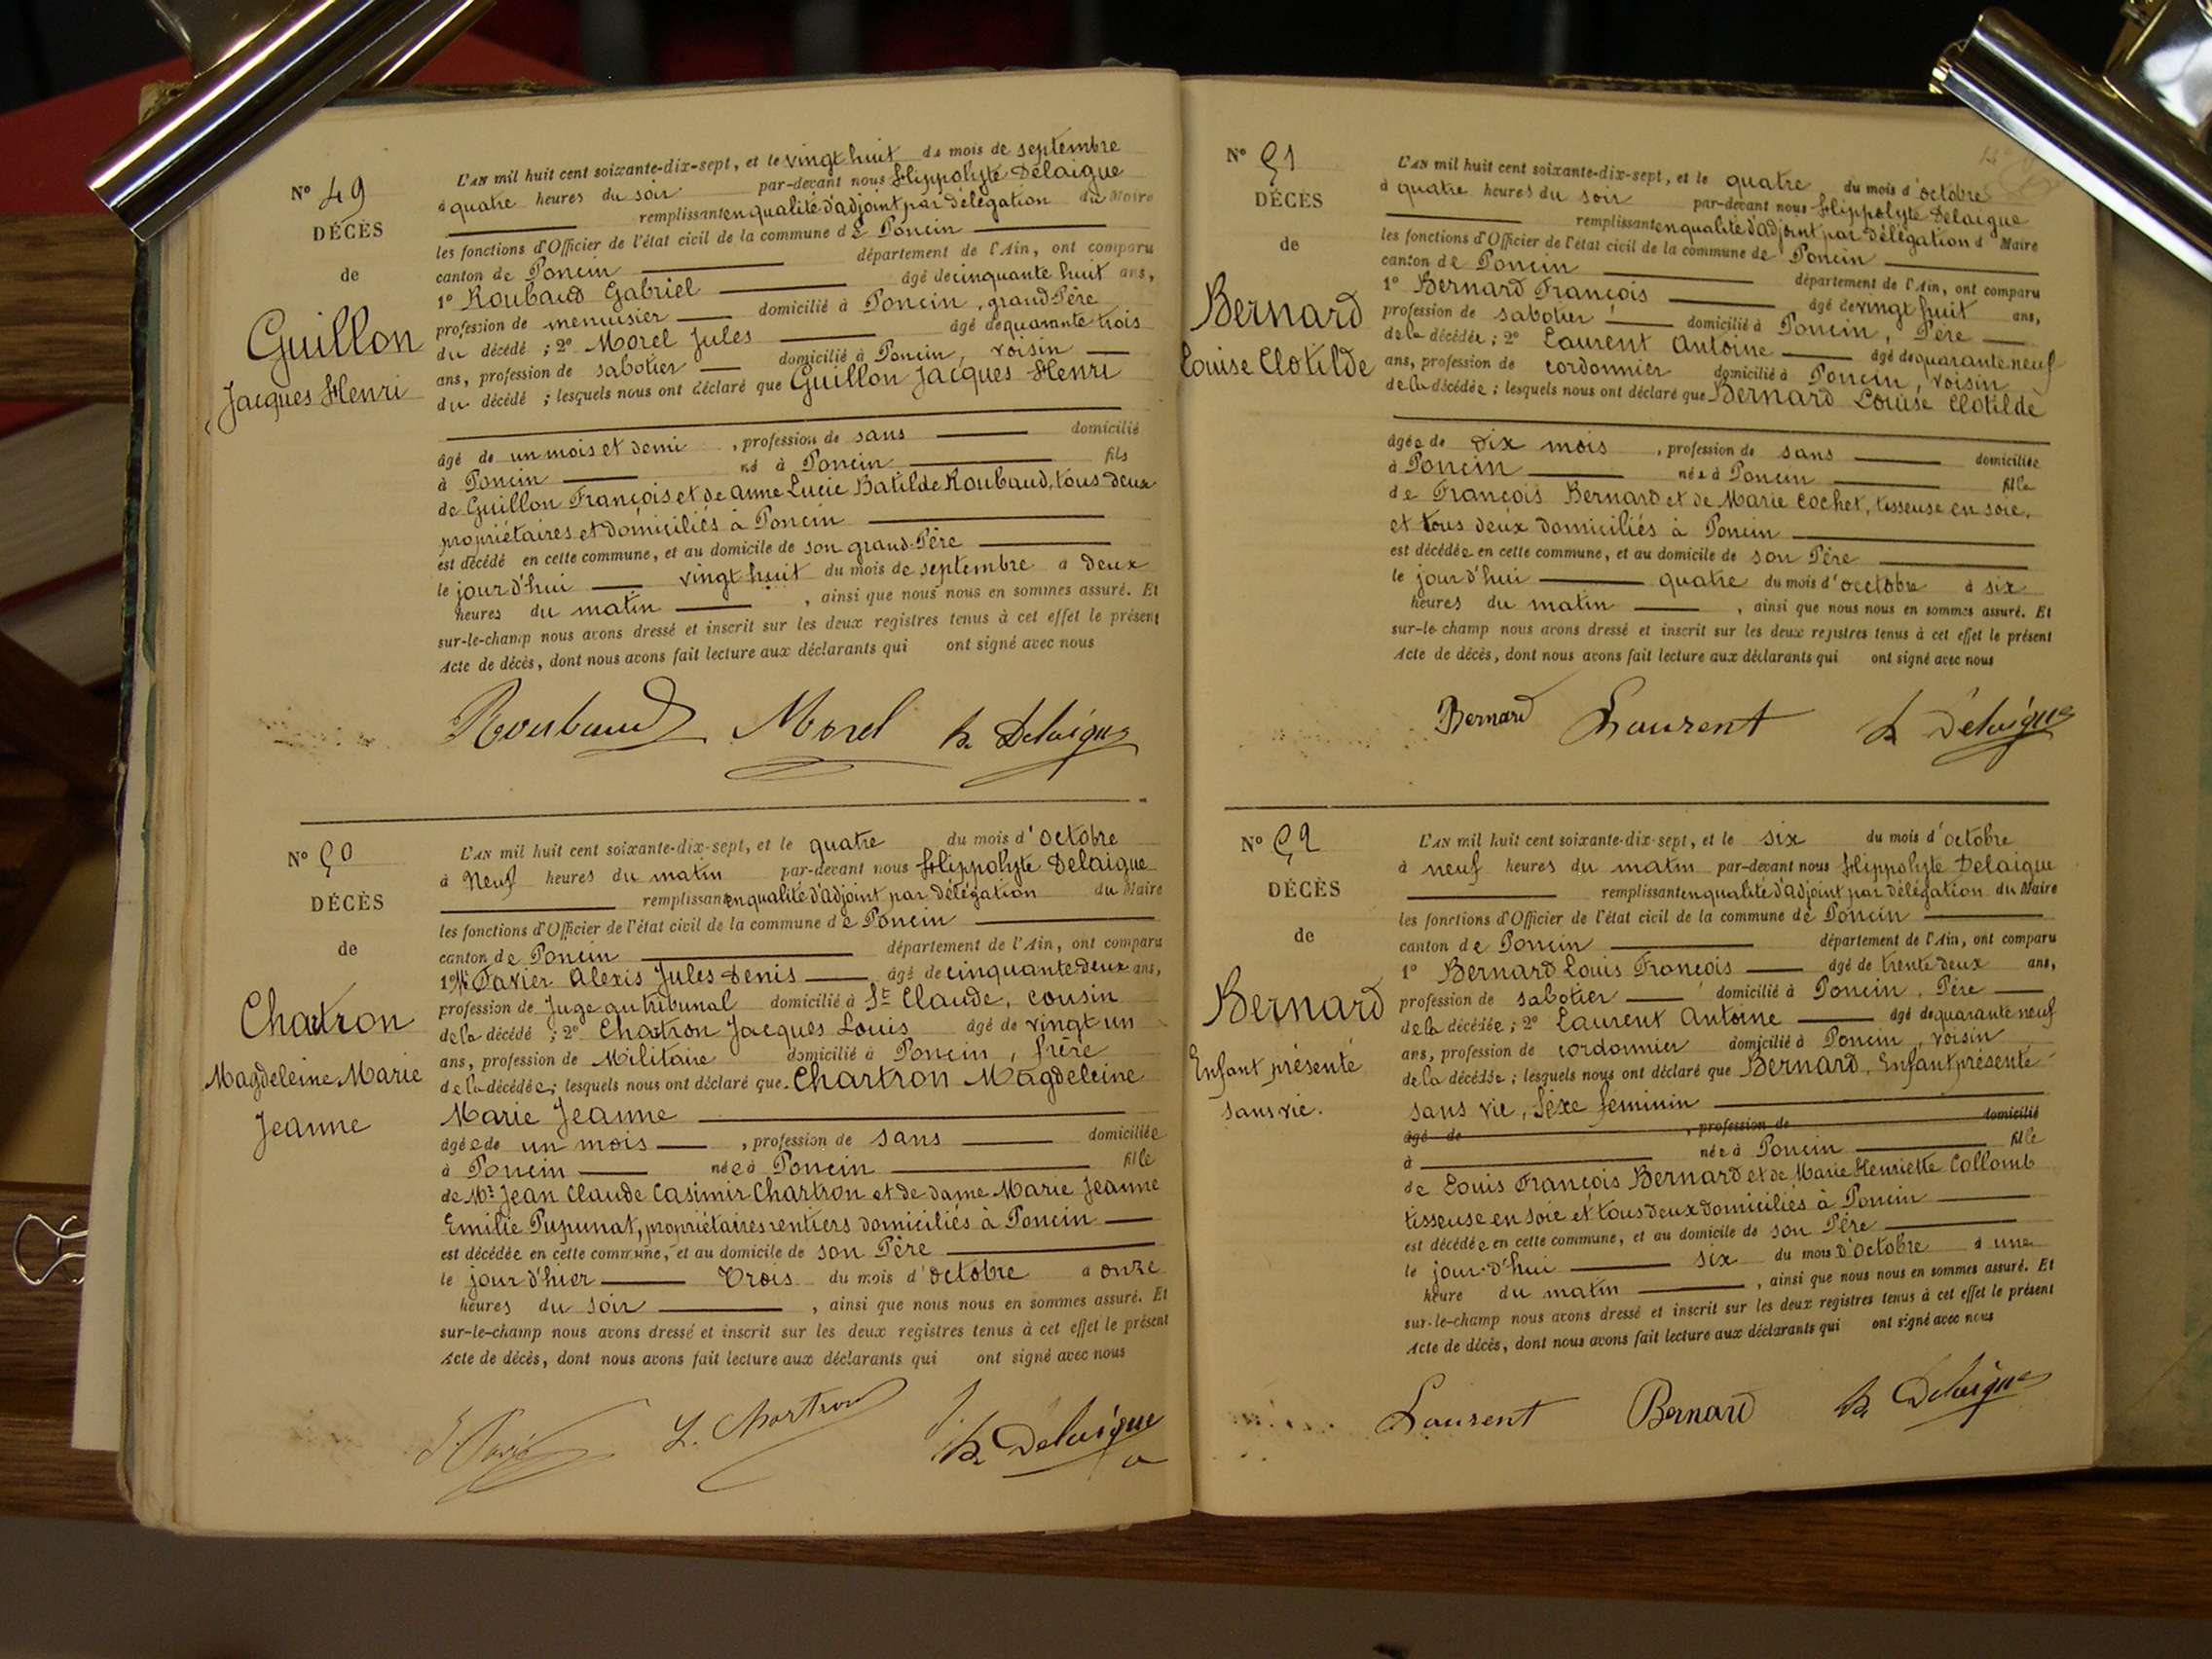 N° 49
DÉCÈS
de
Guillon
Jacques Henri
L'AN mil huit cent soixante-dix-sept, et le vingt huit du mois de septembre
à quatre heures du soir par-devant nous Hippolyte Delaigue
remplissant en qualité d'adjoint par délégation du Maire
les fonctions d'Officier de l'état civil de la commune de Poncin
canton de Poncin département de l'Ain, ont comparu
1° Roubaud Gabriel âgé de cinquante huit ans,
profession de menuisier domicilié à Poncin, grand Père
du décédé ; 2° Morel Jules âgé de quarante trois
ans, profession de sabotier domicilié à Poncin, voisin
du décédé ; lesquels nous ont déclaré que Guillon Jacques Henri
âgé de un mois et demi , profession de sans domicilié
à Poncin né à Poncin fils
de Guillon François et de Anne Lucie Batilde Roubaud, tous deux
propriétaires et domiciliés à Poncin
est décédé en cette commune, et au domicile de son grand-Père
le jour d'hui vingt huit du mois de septembre à deux
heures du matin , ainsi que nous nous en sommes assuré. Et
sur-le-champ nous avons dressé et inscrit sur les deux registres tenus à cet effet le présent
Acte de décès, dont nous avons fait lecture aux déclarants qui ont signé avec nous
Roubaud Morel h. Delaigue
N° 50
DÉCÈS
de
Chartron
Magdeleine Marie
Jeanne
L'AN mil huit cent soixante-dix-sept, et le quatre du mois d'octobre
à Neuf heures du matin par-devant nous Hippolyte Delaigue
remplissant en qualité d'adjoint par délégation du Maire
les fonctions d'Officier de l'état civil de la commune de Poncin
canton de Poncin département de l'Ain, ont comparu
1° Mr Favier Alexis Jules Denis âgé de cinquante deux ans,
profession de Juge au tribunal domicilié à St Claude, cousin
de la décédé ; 2° Chartron Jacques Louis âgé de vingt un
ans, profession de Militaire domicilié à Poncin, frère
de la décédée ; lesquels nous ont déclaré que Chartron Magdeleine
Marie Jeanne
âgée de un mois , profession de sans domiciliée
à Poncin née à Poncin fille
de Mr Jean Claude Casimir Chartron et de dame Marie Jeanne
Emilie Pupunat, propriétaires rentiers domiciliés à Poncin
est décédée en cette commune, et au domicile de son Père
le jour d'hier Trois du mois d'octobre à onze
heures du soir , ainsi que nous nous en sommes assuré. Et
sur-le-champ nous avons dressé et inscrit sur les deux registres tenus à cet effet le présent
Acte de décès, dont nous avons fait lecture aux déclarants qui ont signé avec nous
L. Chartron h. Delaigue
N° 51
DÉCÈS
de
Bernard
Louise Clotilde
L'AN mil huit cent soixante-dix-sept, et le quatre du mois d'octobre
à quatre heures du soir par-devant nous Hippolyte Delaigue
remplissant en qualité d'adjoint par délégation d Maire
les fonctions d'Officier de l'état civil de la commune de Poncin
canton de Poncin département de l'Ain, ont comparu
1° Bernard François âgé de vingt huit ans,
profession de sabotier domicilié à Poncin, Père
de la décédée ; 2° Laurent Antoine âgé de quarante neuf
ans, profession de cordonnier domicilié à Poncin, voisin
de la décédée ; lesquels nous ont déclaré que Bernard Louise Clotilde
âgée de dix mois , profession de sans domiciliée
à Poncin née à Poncin fille
de François Bernard et de Marie Cochet, tisseuse en soie,
et tous deux domiciliés à Poncin
est décédée en cette commune, et au domicile de son Père
le jour d'hui quatre du mois d'occtobre à six
heures du matin , ainsi que nous nous en sommes assuré. Et
sur-le-champ nous avons dressé et inscrit sur les deux registres tenus à cet effet le présent
Acte de décès, dont nous avons fait lecture aux déclarants qui ont signé avec nous
Bernard Laurent h. Delaigue
N° 52
DÉCÈS
de
Bernard
Enfant présenté
sans vie.
L'AN mil huit cent soixante-dix-sept, et le six du mois d'octobre
à neuf heures du matin par-devant nous Hippolyte Delaigue
remplissant en qualité d'adjoint par délégation du Maire
les fonctions d'Officier de l'état civil de la commune de Poncin
canton de Poncin département de l'Ain, ont comparu
1° Bernard Louis François âgé de trente deux ans,
profession de sabotier domicilié à Poncin, Père
de la décédée ; 2° Laurent Antoine âgé de quarante neuf
ans, profession de cordonnier domicilié à Poncin, voisin
de la décédée ; lesquels nous ont déclaré que Bernard, Enfant présenté
sans vie, sexe feminin
âgé de , profession de domicilié
à née à Poncin fille
de Louis François Bernard et de Marie Henriette Collomb
tisseuse en soie et tous deux domiciliés à Poncin
est décédée en cette commune, et au domicile de son Père
le jour d'hui six du mois d'octobre à une
heure du matin , ainsi que nous nous en sommes assuré. Et
sur-le-champ nous avons dressé et inscrit sur les deux registres tenus à cet effet le présent
Acte de décès, dont nous avons fait lecture aux déclarants qui ont signé avec nous
Laurent Bernard h. Delaigue